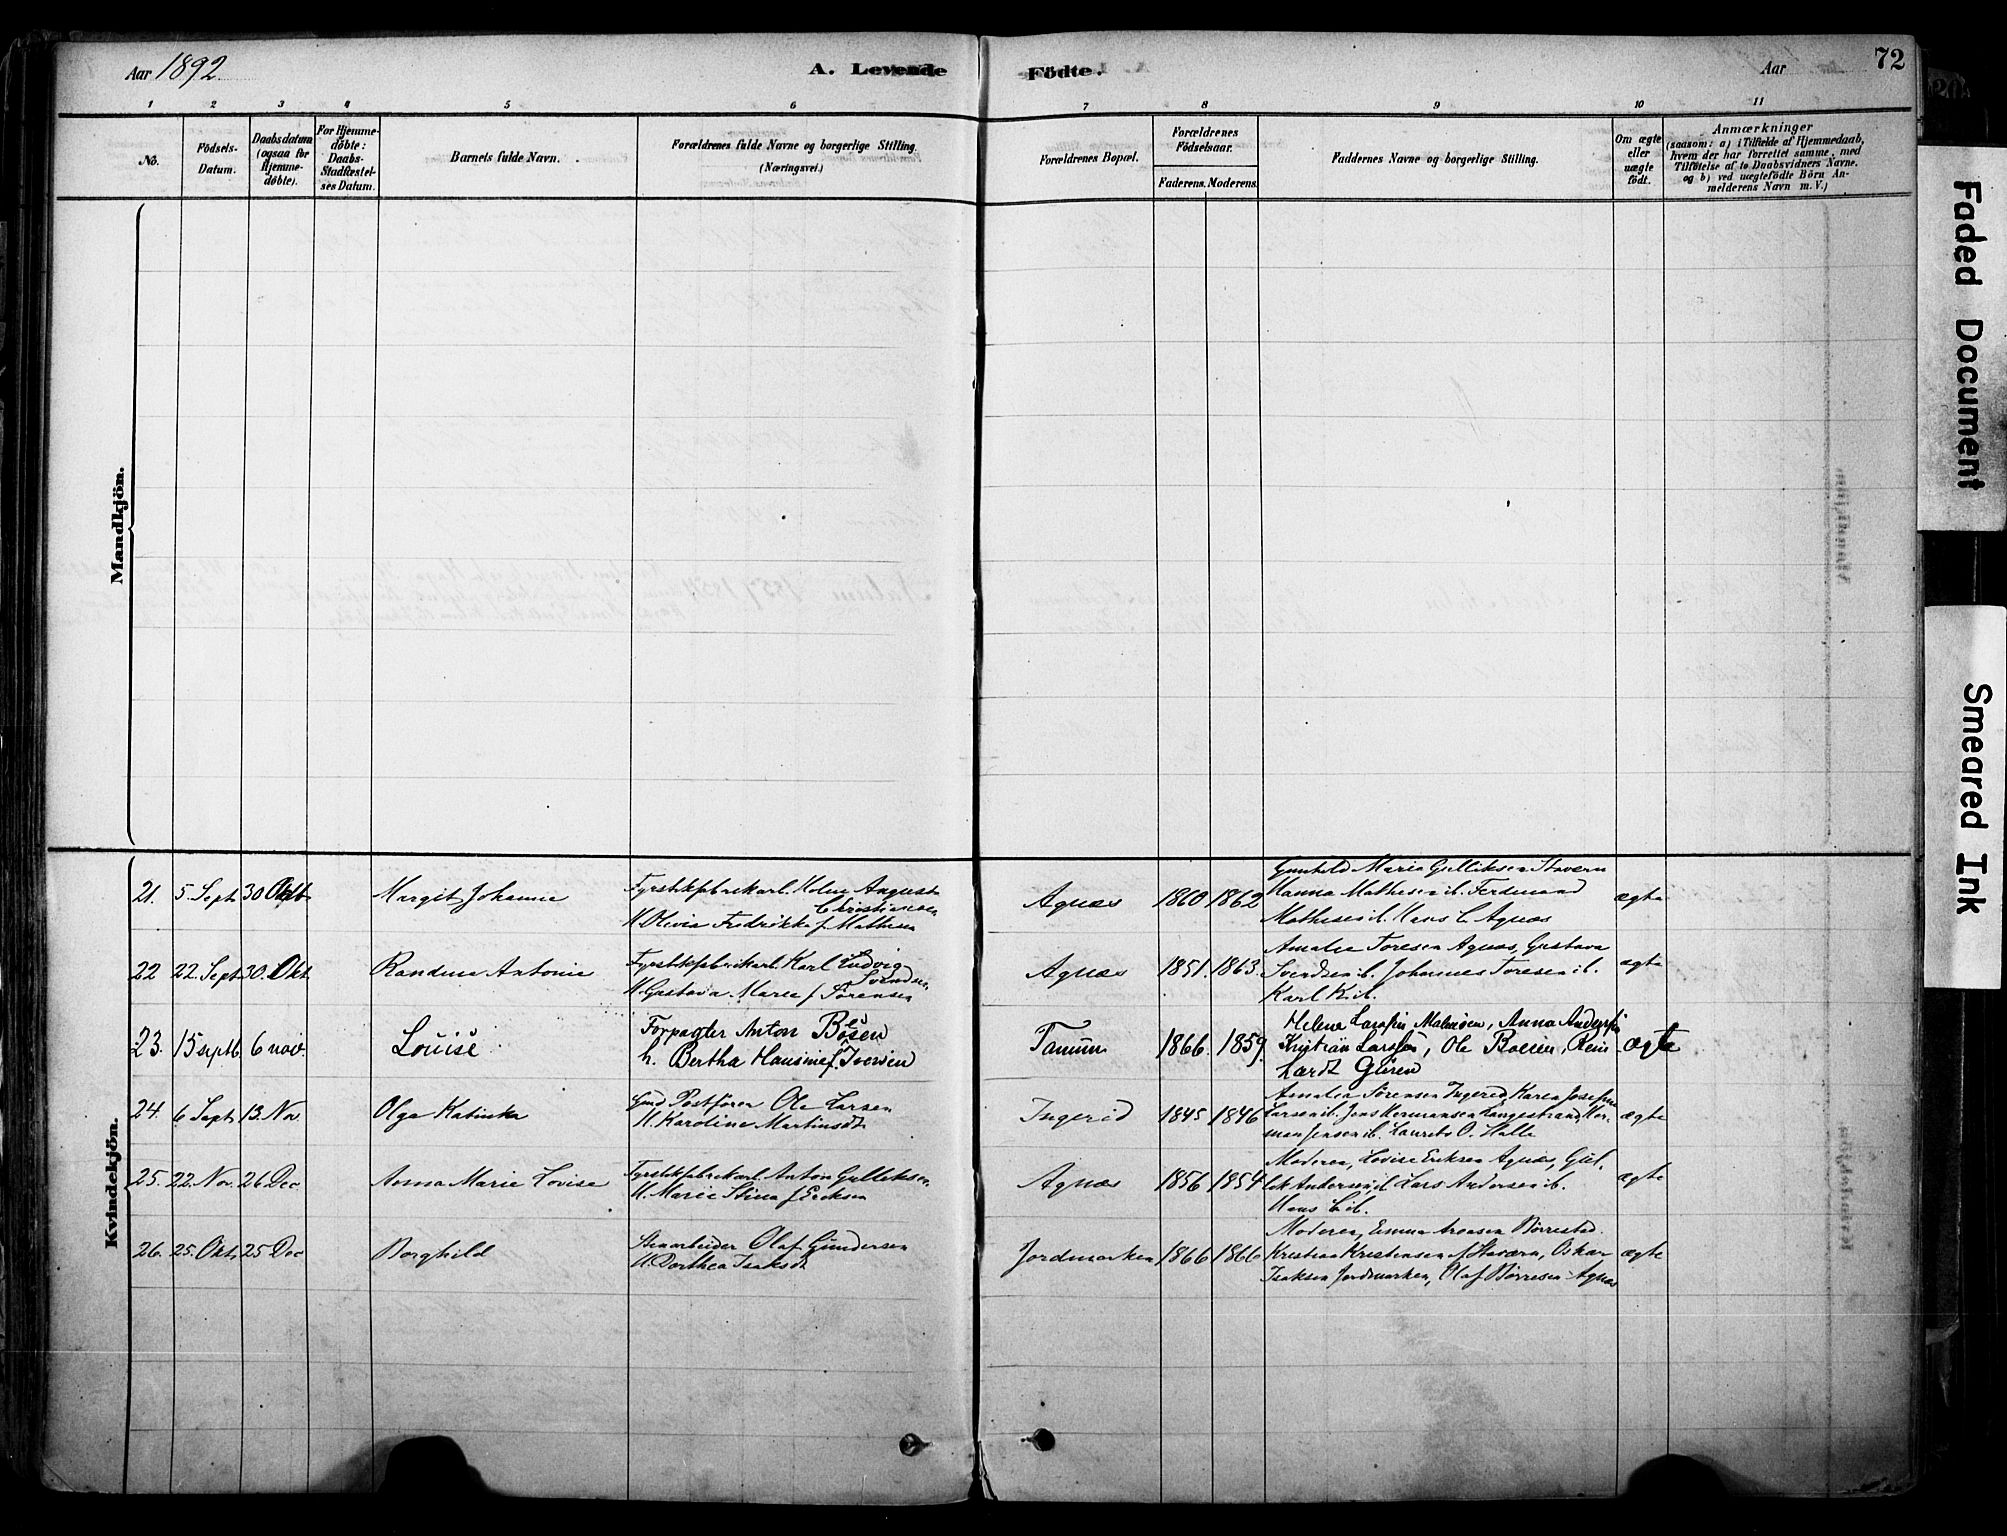 Aar 1892
A. Levende
Födte.
Aar
72
1 2 3 4 5 6 7 8 9 10 11
No.
Födsels-
Datum.
Daabsdatum
(ogsaa for
Hjemme-
döbte).
For Hjemme-
döbte:
Daabs-
Stadfæstel-
ses Datum.
Barnets fulde Navn.
Forældrenes fulde Navne og borgerlige Stilling.
(Næringsvei.)
Forældrenes Bopæl.
Forældrenes
Födselsaar.
Faderens. Moderens.
Faddernes Navne og borgerlige Stilling.
Om ægte
eller
uægte
födt.
Anmærkninger
(saasom: a) i Tilfælde af Hjemmedaab,
hvem der har forrettet samme, med
Tilföielse af to Daabsvidners Navne.
og b) ved uægtefödte Börn An-
melderens Navn m. V.)
Mandkjön.
Kvindekjön.
21. 5. Sept. 30 Okt Margit Johanne
Holm August
Christiansen
H. Olivia Fredrikke f. Mathisen
Agnæs 1860 1862
Gunhild Marie Gulliksen Stavern
Hanna Mathisen ib. Ferdinand
Mathisen ib. Hans C. Agnæs
ægte
22 22. Sept. 30. Okt Randine Antonie
Karl Ludvig
Svendsen
H. Gustava Marie f. Sørensen
Agnæs 1851. 1863.
Amalie Toresen Agnæs, Gustava
Svendsen ib. Johannes Toresen ib.
Karl K. ib.
ægte
23. 15 septb. 6 nov. Louise
Forpagter Anton Boesen
h. Bertha Hansine f. Iversen
Tanum 1866. 1859.
Helene Larssen Malmøen, Anna Anderssen
Kristian Larssen, Ole Boesen, Rein
hardt Gûren
ægte
24. 6 Sept. 13. Nov. Olga Katinka
Gmd. Postfører Ole Larsen
H. Karoline Martinsdt.
Ingerid 1845 1846
Amalia Sørensen Ingerid Karen Josefine
Larsen ib. Jens Hermansen Langestrand, Her-
man Jensen ib. Laurits O. Halle
ægte
25. 22. Nov. 26 Dec Anna Marie Lovise
Anton Gulliksen
H. Marie Stina f. Eriksen
Agnæs 1856 1854
Moderen, Lovise Eriksen Agnæs, Gul-
lik Andersen ib. Lars Andersen ib.
Hans L. ib.
ægte
26. 25. Okt. 25 Dec Borghild
Stenarbeider Olaf Gundersen
H. Dorthea Isaksdt.
Jordmarken 1866 1866
Moderen, Emma Aroesen Børrestad
Kristian Kristensen f. Stavern, Oskar
Isaksen Jordmarken, Olaf Børresen Agnæs
ægte
Faded Document
Smeared Ink